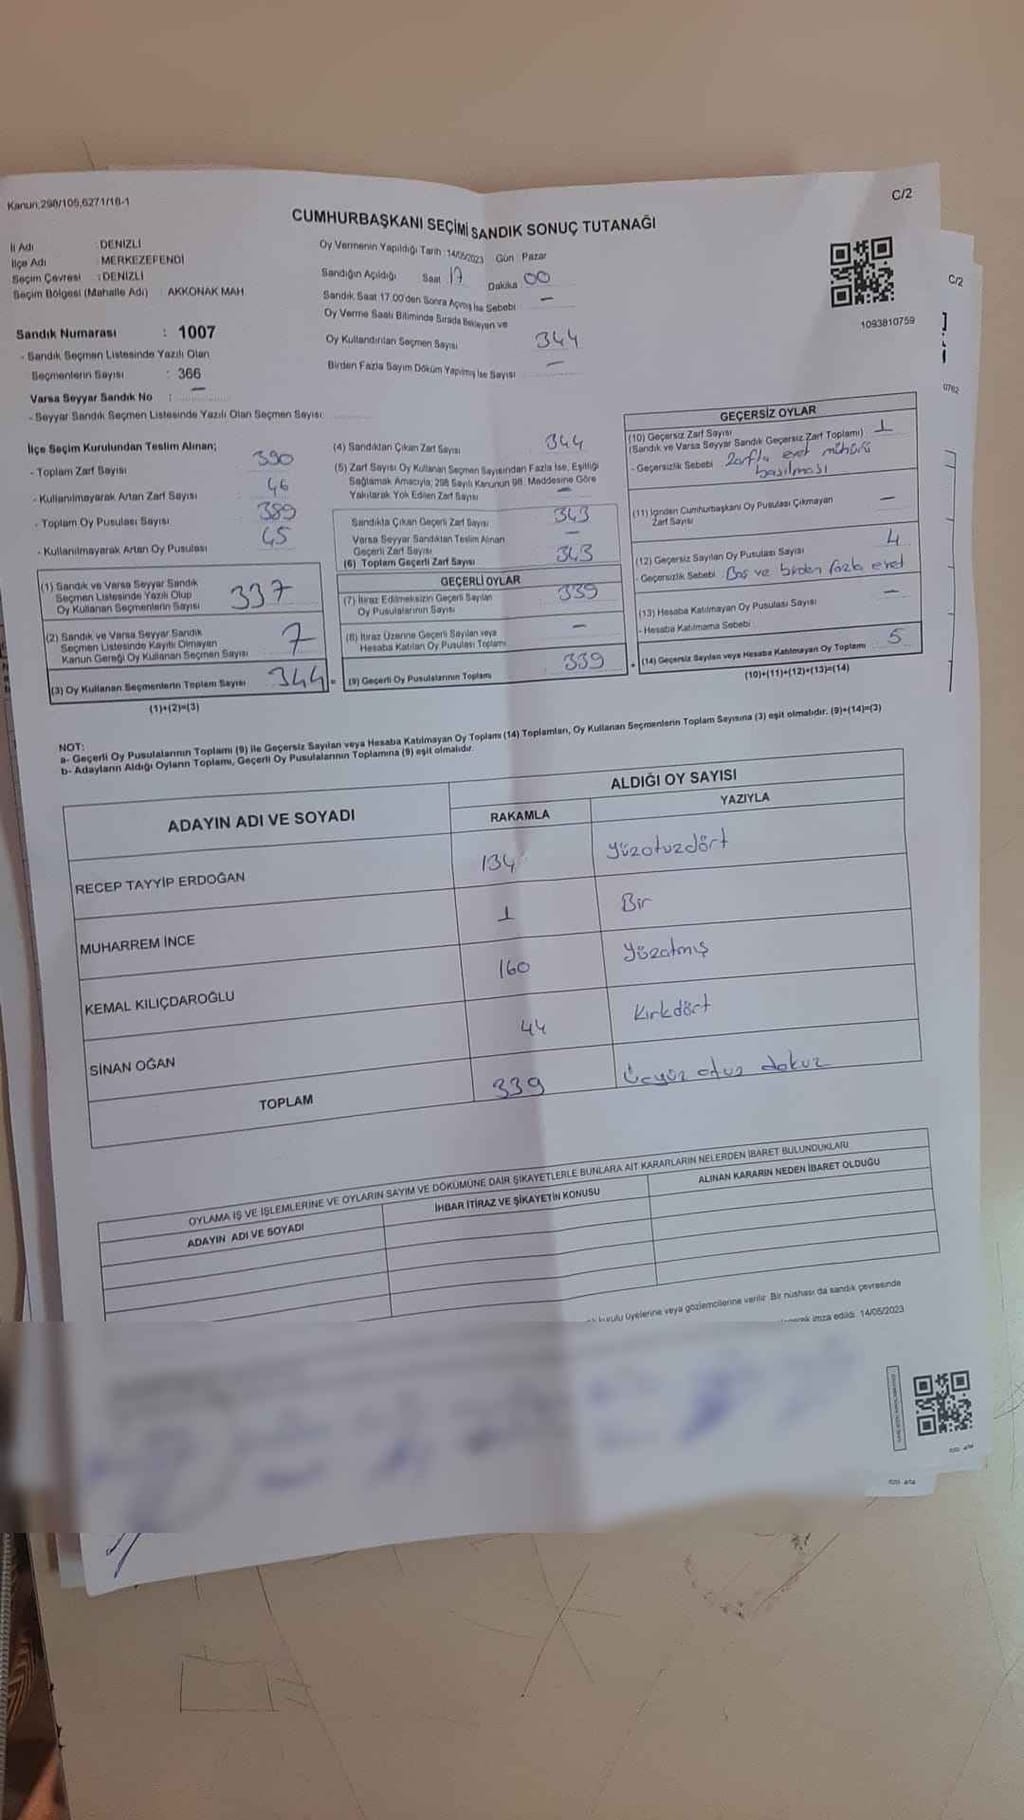 Kanun;298/105,6271/18-1
C/2
CUMHURBAŞKANI SEÇİMİ SANDIK SONUÇ TUTANAĞI
İl Adı : DENİZLİ
İlçe Adı : MERKEZEFENDİ
Seçim Çevresi : DENİZLİ
Seçim Bölgesi (Mahalle Adı) : AKKONAK MAH.
Oy Vermenin Yapıldığı Tarih : 14/05/2023 Gün : Pazar
Sandığın Açıldığı Saat 17 Dakika 00
Sandık Saat 17.00'den Sonra Açmış İse Sebebi : —
Oy Verme Saati Bitiminde Sırada Bekleyen ve
Oy Kullandırılan Seçmen Sayısı 344
Birden Fazla Sayım Döküm Yapılmış İse Sayısı —
1093810759
C/2
0762
Sandık Numarası : 1007
- Sandık Seçmen Listesinde Yazılı Olan
Seçmenlerin Sayısı : 366
Varsa Seyyar Sandık No : —
- Seyyar Sandık Seçmen Listesinde Yazılı Olan Seçmen Sayısı:
İlçe Seçim Kurulundan Teslim Alınan;
- Toplam Zarf Sayısı 390
- Kullanılmayarak Artan Zarf Sayısı 46
- Toplam Oy Pusulası Sayısı 389
- Kullanılmayarak Artan Oy Pusulası 45
(1) Sandık ve Varsa Seyyar Sandık
Seçmen Listesinde Yazılı Olup
Oy Kullanan Seçmenlerin Sayısı 337
(2) Sandık ve Varsa Seyyar Sandık
Seçmen Listesinde Kayıtlı Olmayan
Kanun Gereği Oy Kullanan Seçmen Sayısı 7
(3) Oy Kullanan Seçmenlerin Toplam Sayısı 344
(1)+(2)=(3)
(4) Sandıktan Çıkan Zarf Sayısı 344
(5) Zarf Sayısı Oy Kullanan Seçmen Sayısından Fazla İse, Eşitliği
Sağlamak Amacıyla; 298 Sayılı Kanunun 98. Maddesine Göre
Yakılarak Yok Edilen Zarf Sayısı —
Sandıkta Çıkan Geçerli Zarf Sayısı 343
Varsa Seyyar Sandıktan Teslim Alınan
Geçerli Zarf Sayısı —
(6) Toplam Geçerli Zarf Sayısı 343
GEÇERLİ OYLAR
(7) İtiraz Edilmeksizin Geçerli Sayılan
Oy Pusulalarının Sayısı 339
(8) İtiraz Üzerine Geçerli Sayılan veya
Hesaba Katılan Oy Pusulası Toplamı —
= (9) Geçerli Oy Pusulalarının Toplamı 339
GEÇERSİZ OYLAR
(10) Geçersiz Zarf Sayısı
(Sandık ve Varsa Seyyar Sandık Geçersiz Zarf Toplamı) 1
- Geçersizlik Sebebi Zarfta evet mührü
basılması
(11) İçinden Cumhurbaşkanı Oy Pusulası Çıkmayan
Zarf Sayısı —
(12) Geçersiz Sayılan Oy Pusulası Sayısı 4
- Geçersizlik Sebebi Boş ve birden fazla evet
(13) Hesaba Katılmayan Oy Pusulası Sayısı —
- Hesaba Katılmama Sebebi
+ (14) Geçersiz Sayılan veya Hesaba Katılmayan Oy Toplamı 5
(10)+(11)+(12)+(13)=(14)
NOT:
a- Geçerli Oy Pusulalarının Toplamı (9) ile Geçersiz Sayılan veya Hesaba Katılmayan Oy Toplamı (14) Toplamları, Oy Kullanan Seçmenlerin Toplam Sayısına (3) eşit olmalıdır. (9)+(14)=(3)
b- Adayların Aldığı Oyların Toplamı, Geçerli Oy Pusulalarının Toplamına (9) eşit olmalıdır.
ADAYIN ADI VE SOYADI
ALDIĞI OY SAYISI
RAKAMLA YAZIYLA
RECEP TAYYİP ERDOĞAN 134 Yüzotuzdört
MUHARREM İNCE 1 Bir
KEMAL KILIÇDAROĞLU 160 Yüzatmış
SİNAN OĞAN 44 Kırkdört
TOPLAM 339 Üçyüz otuz dokuz
OYLAMA İŞ VE İŞLEMLERİNE VE OYLARIN SAYIM VE DÖKÜMÜNE DAİR ŞİKAYETLERLE BUNLARA AİT KARARLARIN NELERDEN İBARET BULUNDUKLARI
ADAYIN ADI VE SOYADI
İHBAR İTİRAZ VE ŞİKAYETİN KONUSU
ALINAN KARARIN NEDEN İBARET OLDUĞU
kurulu üyelerine veya gözlemcilerine verilir. Bir nüshası da sandık çevresinde
imza edildi. 14/05/2023